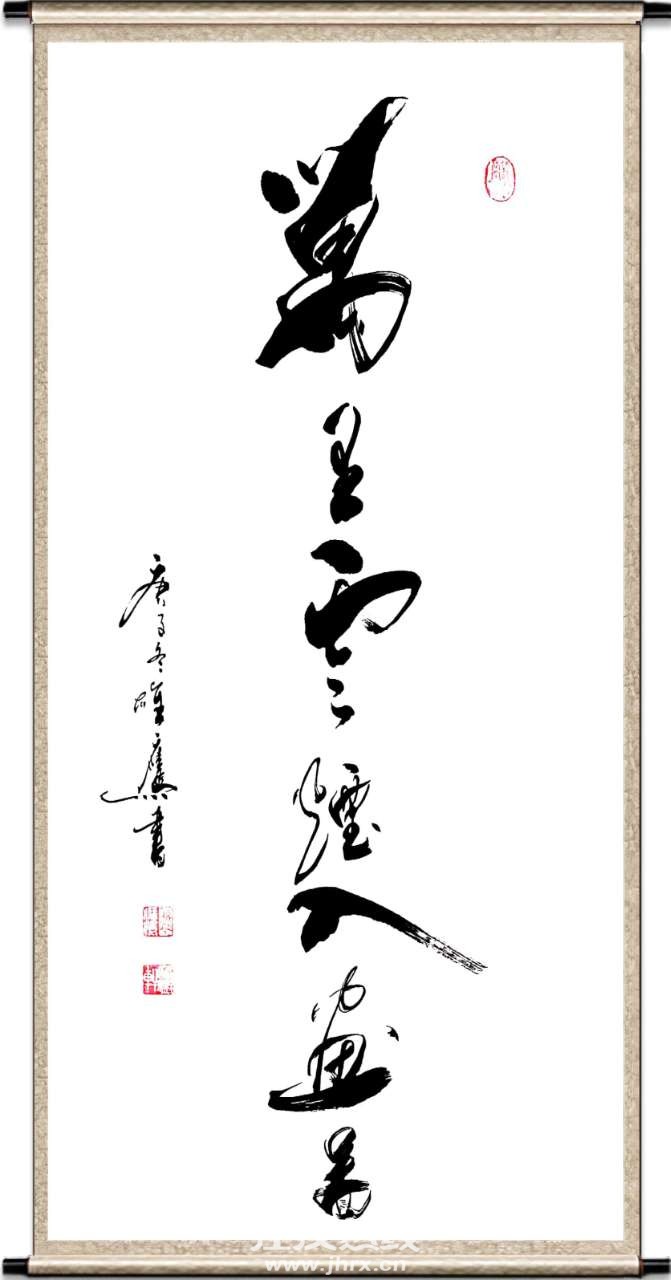 萬里雲煙入畫圖
庚子冬雄鷹書
www.jhrx.cn